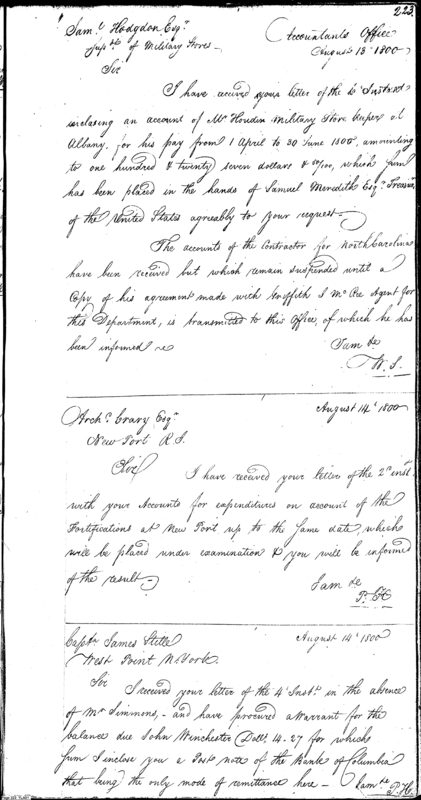 223
Saml Hodgdon Esqr Accountants Office
Supdt of Military Stores August 13 1800
Sir
I have received your letter of the 6 Instant
inclosing an account of Mr Houdin Military Store keeper at
Albany, for his pay from 1 April to 30 June 1800, amounting
to one hundred & twenty seven dollars & 50/100, which sum
has been placed in the hands of Samuel Meredith Esqr Treasurer
of the United States agreeably to your request
The accounts of the Contractor for North Carolina
have been received but which remain suspended until a
Copy of his agreement made with Griffith J McRee Agent for
this Department, is transmitted to this Office, of which he has
been informed
I am &c
W. S.
August 14t 1800
Archd Crary Esqr
New Port R I.
Sir
I have received your letter of the 2d inst
with your Accounts for expenditures on account of the
Fortifications at New Port up to the same date which
will be placed under examination & you will be informed
of the result
I am &c
P. H
Captn James Stille August 14t 1800
West Point N. York.
Sir I received your letter of the 4t Inst. in the absence
of Mr Simmons, and have procured a Warrant for the
balance due John Winchester (Dolls 14.27 for which
sum I inclose you a Post note of the Bank of Columbia
that being the only mode of remittance here I am &c P. H.